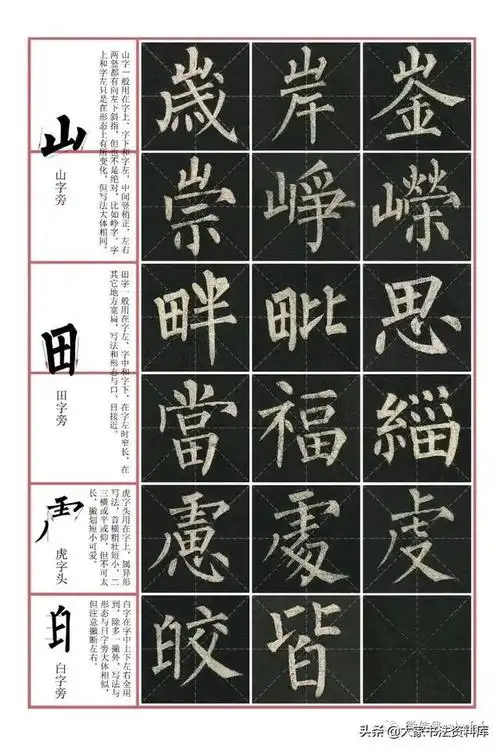 山
山字旁
山字一般用在字上、字下和字左，中间竖稍正，左右
两竖都有向左下斜指，但也不是绝对，比如峥字，字
上和字左只是在形态上有所变化，但写法大体相同。
歲 岸 崟
崇 崢 嶸
田
田字旁
田字一般用在字左、字中和字下，在字左时窄长，在
其它地方宽扁，写法和形态与口、日接近。
畔 毗 思
當 福 緇
虍
虎字头
虎字头用在字上，属异形
写法，首横粗壮短小，二
三横或平或仰，但不可太
长，撇划短小可爱。
慮 處 虔
白
白字旁
白字在字中上下左右全用
到，除多一撇外，写法与
形态与日字旁大体相似，
但注意撇断左右。
皎 皆
头条 @大家书法资料库